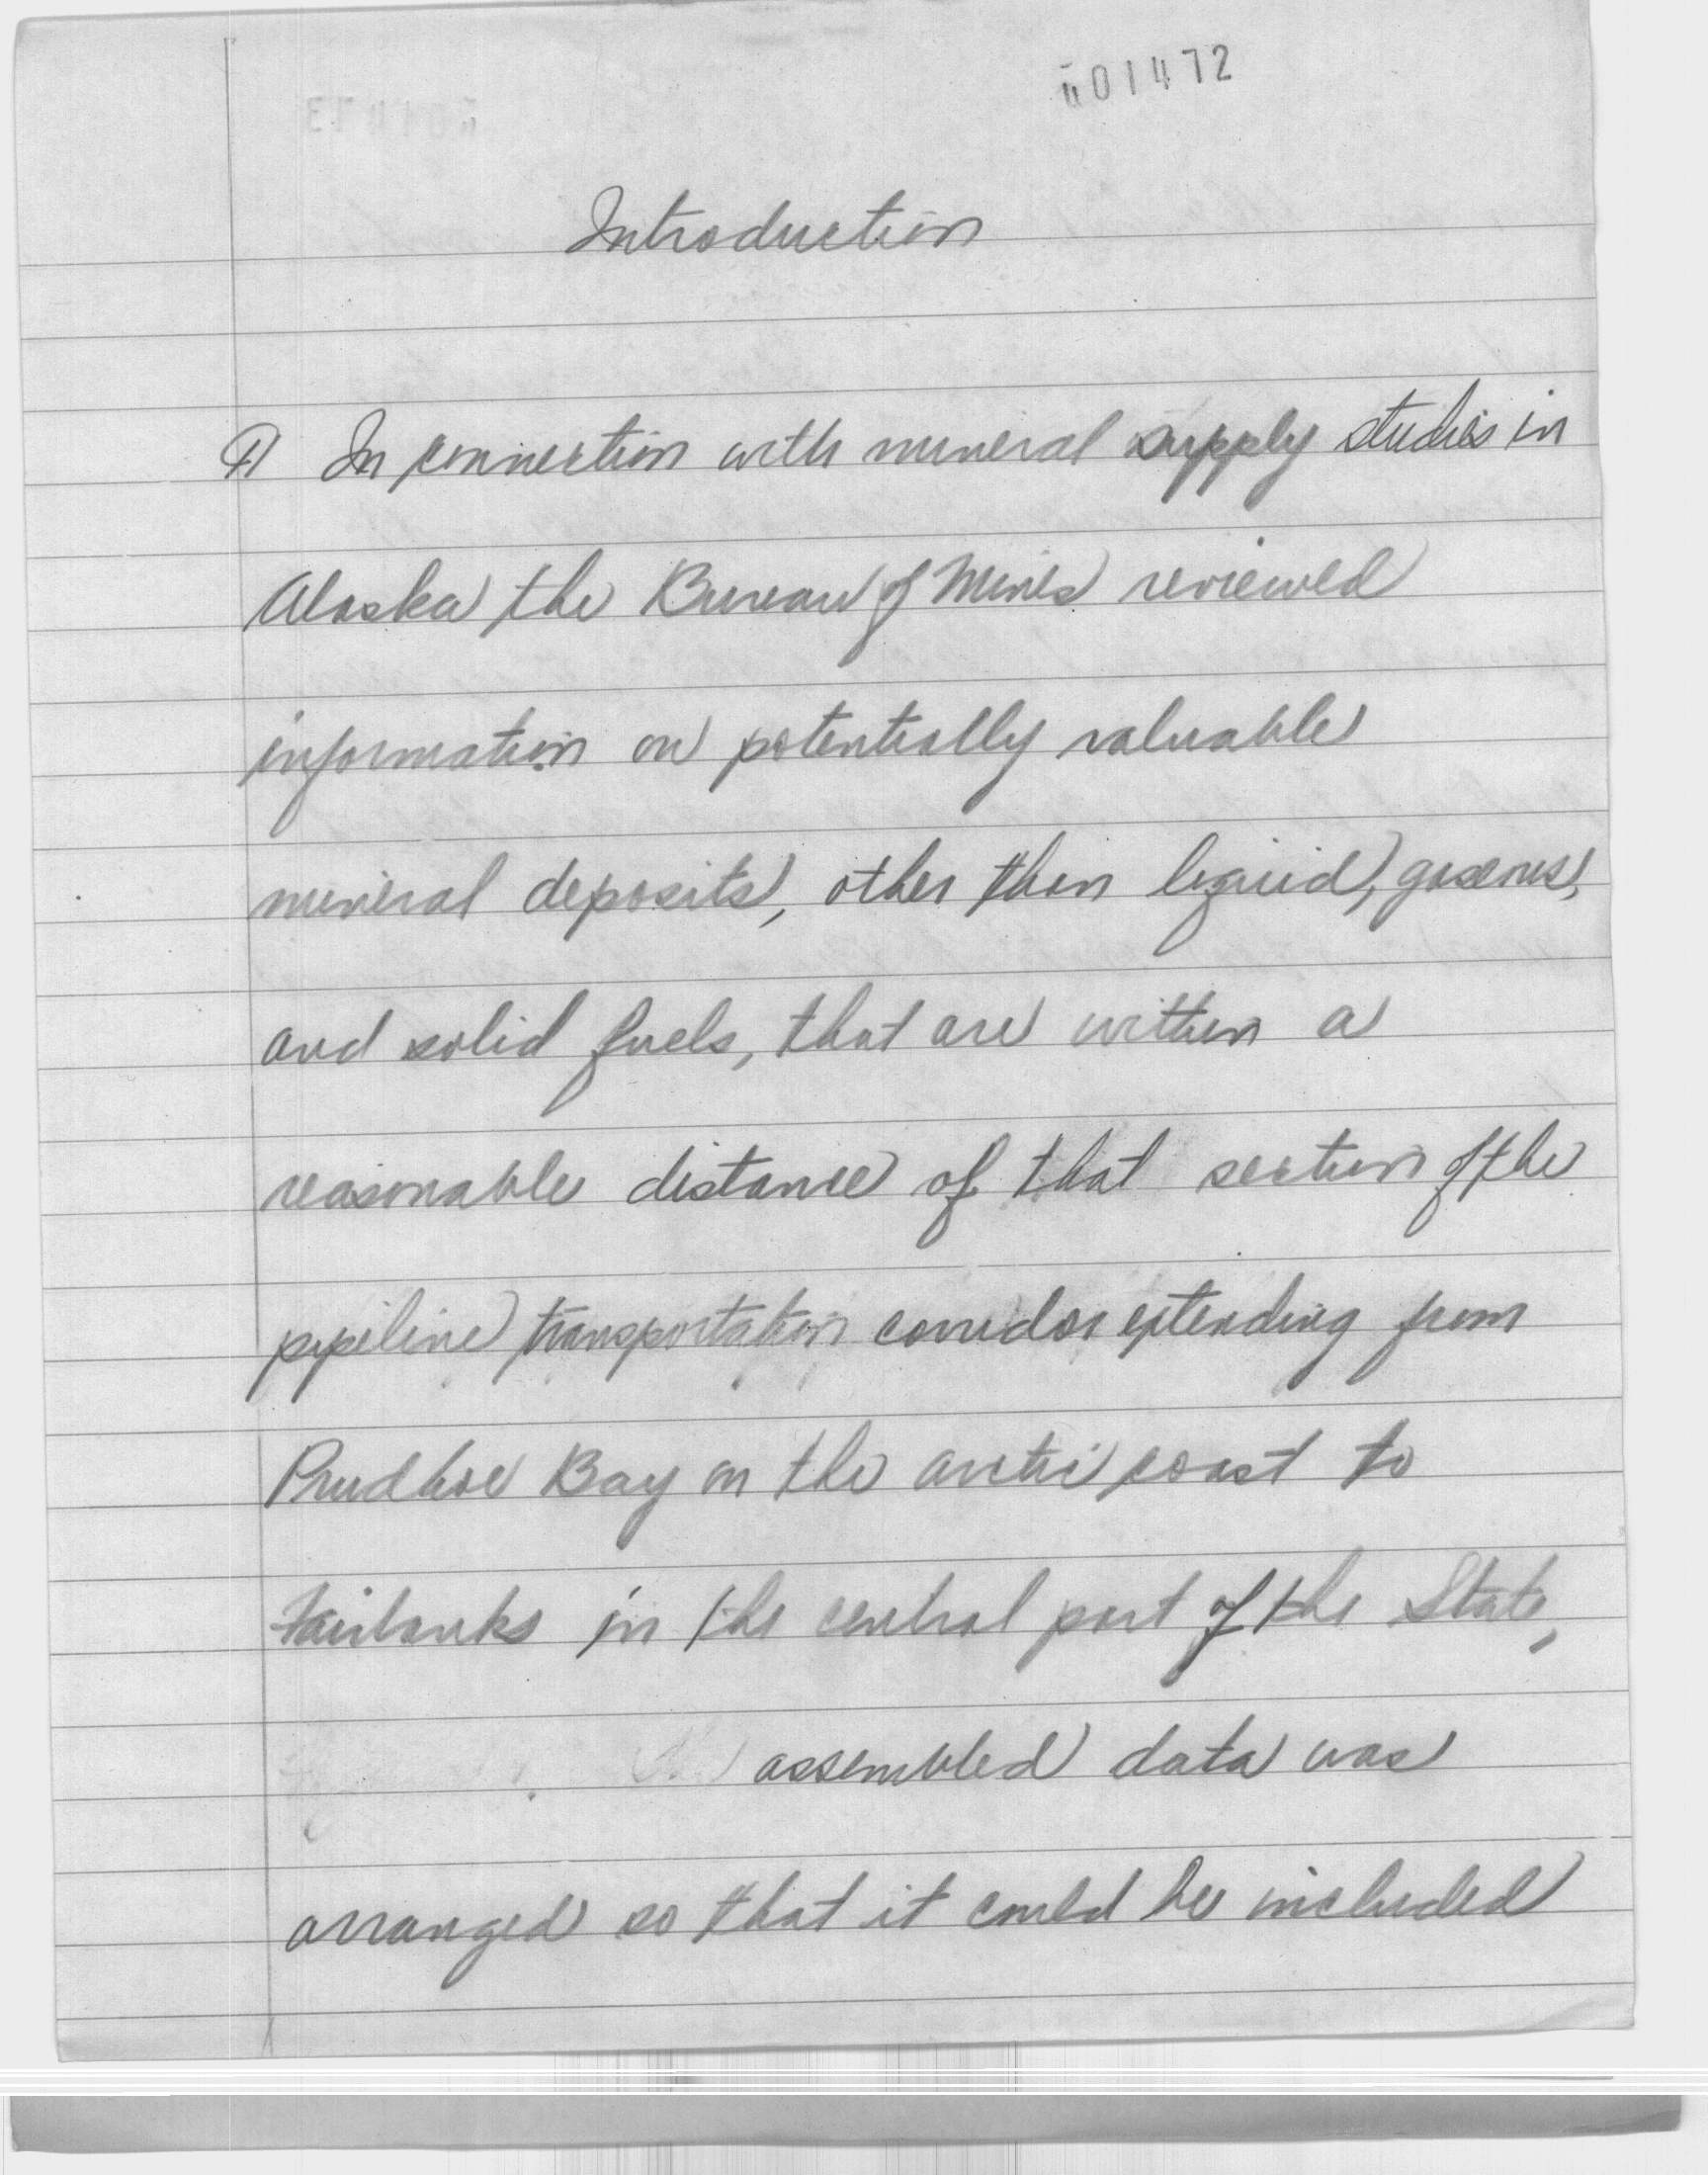 401472
Introduction
In connection with mineral supply studies in
Alaska the Bureau of Mines reviewed
information on potentially valuable
mineral deposits, other than liquid, gaseous,
and solid fuels, that are within a
reasonable distance of that section of the
pipeline transportation corridor extending from
Prudhoe Bay on the arctic coast to
Fairbanks in the central part of the State,
assembled data was
arranged so that it could be included